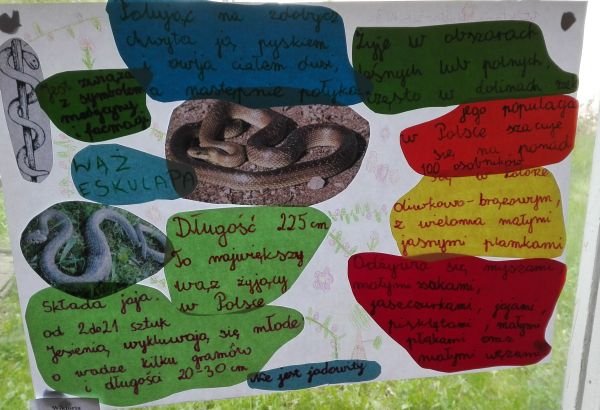 Polując na zdobycz
chwyta ją pyskiem
i owija ciałem dusi,
a następnie połyka
Żyje w obszarach
leśnych lub polnych,
często w dolinach
Jest związa
z symbolem
medycyny
i farmacji
WĄŻ
ESKULAPA
jego populacja
w Polsce szacuje
się na ponad
100 osobników
się w kolorze
oliwkowo-brązowym,
z wieloma małymi
jasnymi plamkami
Długość 225 cm
To największy
wąż żyjący
w Polsce
Odżywia się myszami
małymi ssakami,
jaszczurkami, jajami,
pisklętami, małymi
ptakami oraz
małymi wężami
Składa jaja.
od 2 do 21 sztuk
Jesienią wykluwają się młode
o wadze kilku gramów
i długości 20-30 cm
Nie jest jadowity
Wiktoria